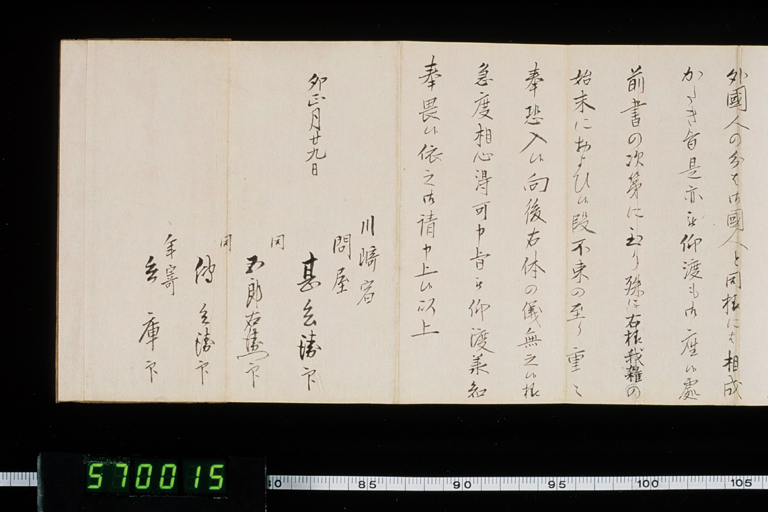 外國人の分も御國人と同様に者相成
かたき旨是亦被仰渡も御座候處
前書の次第に至り殊に右様我雑の
始末におよひ候段不束の至り重々
奉恐入候向後右体の儀無之候様
急度相心得可申旨被仰渡承知
奉畏候依之御請申上候以上
卯正月廿九日
川崎宿
問屋
甚兵衛印
同
五郎右衛門印
同
傳兵衛印
年寄
兵庫印
570015
80 85 90 95 100 105